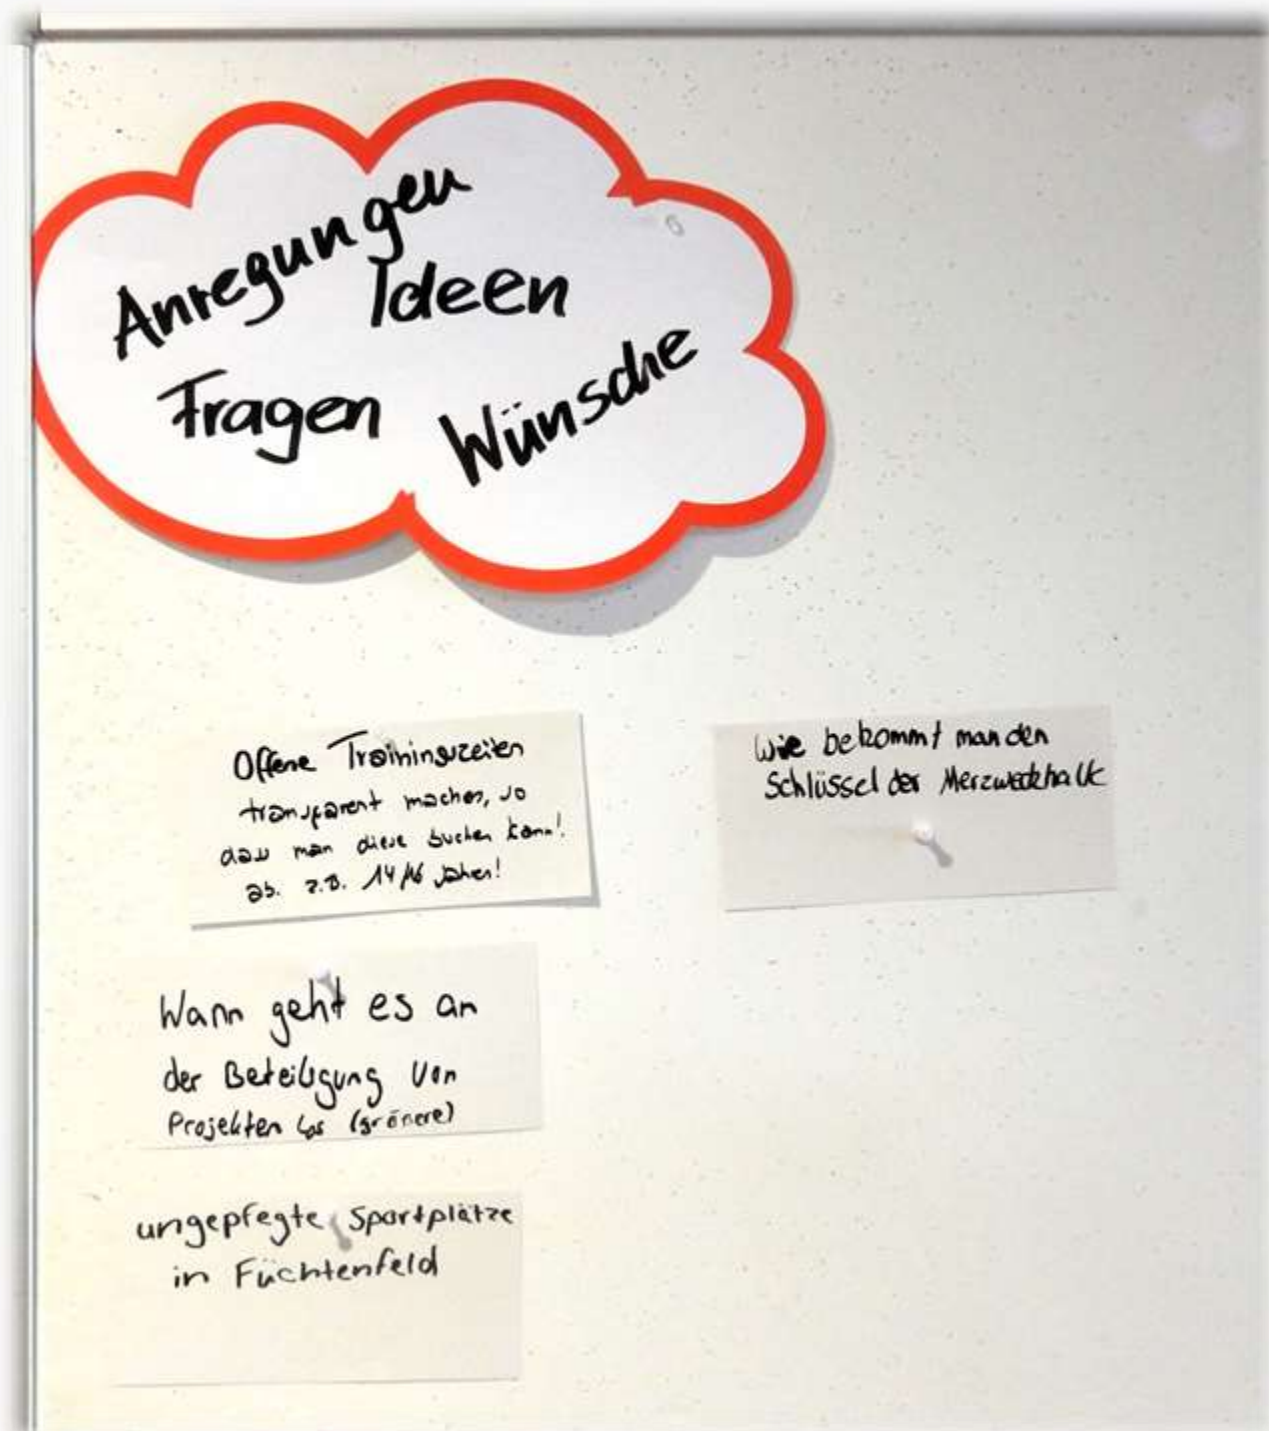 Anregungen
Ideen
Fragen
Wünsche
Offene Trainingszeiten
transparent machen, so
dass man diese buchen kann!
ab. z.B. 14/16 Jahren!
Wie bekommt man den
Schlüssel der Merzweckhalle
Wann geht es an
der Beteiligung von
Projekten los (grönere)
ungepfegte Sportplätze
in Füchtenfeld